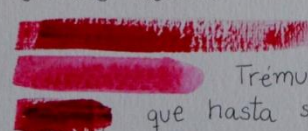 Trému
que hasta s